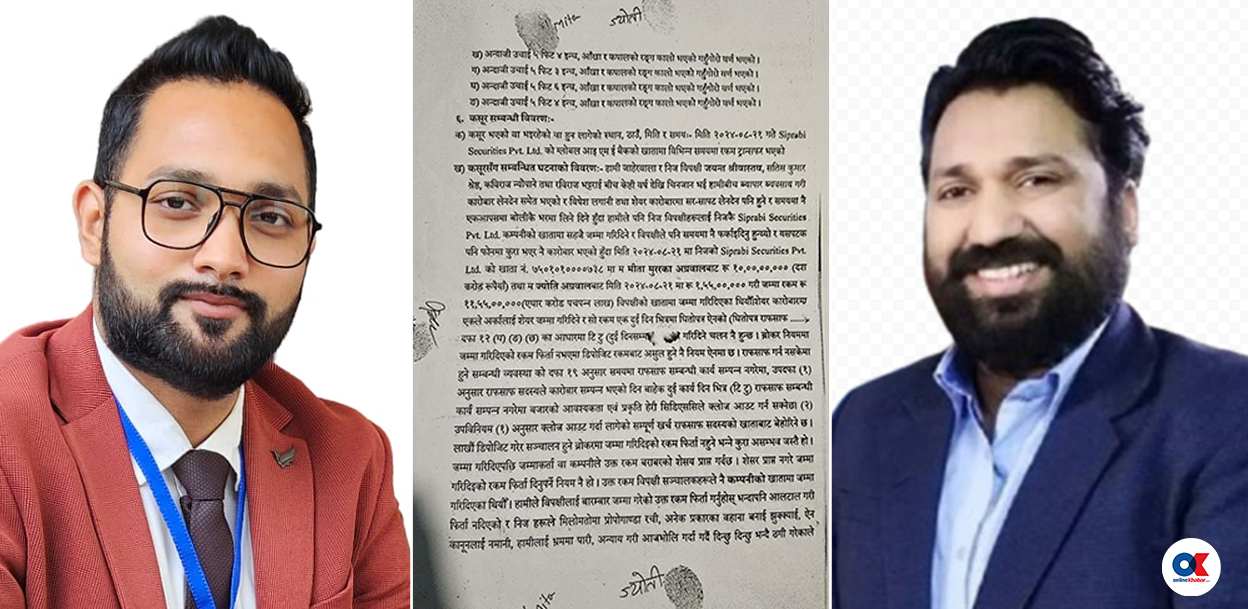 mita ज्योती
ख) अन्दाजी उचाई ५ फिट ४ इन्च, आँखा र कपालको रङ्ग कालो भएको गहुँगोरो वर्ण भएको ।
ग) अन्दाजी उचाई ५ फिट ३ इन्च, आँखा र कपालको रङ्ग कालो भएको गहुँगोरो वर्ण भएको ।
घ) अन्दाजी उचाई ५ फिट ६ इन्च, आँखा र कपालको रङ्ग कालो भएको गहुँगोरो वर्ण भएको ।
ङ) अन्दाजी उचाई ५ फिट ४ इन्च, आँखा र कपालको रङ्ग कालो भएको गहुँगोरो वर्ण भएको ।
६. कसूर सम्बन्धी विवरणः-
क) कसूर भएको वा भइरहेको वा हुन लागेको स्थान, ठाउँ, मिति र समयः- मिति २०२४-०८-२१ गते Siprabi
Securities Pvt. Ltd. को ग्लोबल आइ एम ई बैंकको खातामा विभिन्न समयमा रकम ट्रान्सफर भएको
ख) कसूरसँग सम्बन्धित घटनाको विवरणः- हामी जाहेरवाला र निज विपक्षी जयन्त श्रीवास्तव, सतिस कुमार
श्रेष्ठ, कविराज न्यौपाने तथा रविराज भट्टराई बीच केही वर्ष देखि चिनजान भई हामीबीच ब्यापार ब्यवसाय गरी
कारोबार लेनदेन समेत भएको र विषेश लगानी तथा शेयर कारोबारमा सर-सापट लेनदेन पनि हुने र समयमा नै
एकआपसमा बोलीकै भरमा लिने दिने हुँदा हामीले पनि निज विपक्षीहरूलाई निजकै Siprabi Securities
Pvt. Ltd. कम्पनीको खातामा सहजै जम्मा गरिदिने र विपक्षीले पनि समयमा नै फर्काइदिनु हुन्थ्यो र यसपटक
पनि फोनमा कुरा भइ नै कारोबार भएको हुँदा मिति २०२४-०८-२१ मा निजको Siprabi Securities Pvt.
Ltd. को खाता नं. ७५०१०१००००७३८ मा म मीता मुररका अग्रवालबाट रू १०,००,००,००० (दश
करोड रूपैयाँ) तथा म ज्योति अग्रवालबाट मिति २०२४-०८-२१ मा रू १,५५,००,००० गरी जम्मा रकम रू
११,५५,००,०००(एघार करोड पचपन्न लाख) विपक्षीको खातामा जम्मा गरिदिएका थियौँ।शेयर कारोबारमा
एकले अर्कालाई शेयर जम्मा गरिदिने र सो रकम एक दुई दिन भित्रमा धितोपत्र ऐनको (धितोपत्र राफसाफ .......
दफा १२ (घ) (ङ) (छ) का आधारमा टि टु (दुई दिनसम्म गरिदिने चलन नै हुन्छ । ब्रोकर नियममा
जम्मा गरिदिएको रकम फिर्ता नभएमा डिपोजिट रकमबाट असुल हुने नै नियम ऐनमा छ । राफसाफ गर्न नसकेमा
हुने सम्बन्धी व्यवस्था को दफा ११ अनुसार समयमा राफसाफ सम्बन्धी कार्य सम्पन्न नगरेमा, उपदफा (१)
अनुसार राफसाफ सदस्यले कारोबार सम्पन्न भएको दिन बाहेक दुई कार्य दिन भित्र (टि टु) राफसाफ सम्बन्धी
कार्य सम्पन्न नगरेमा बजारको आवश्यकता एवं प्रकृति हेरी सिडिएससिले क्लोज आउट गर्न सक्नेछ। (२)
उपविनियम (१) अनुसार क्लोज आउट गर्दा लागेको सम्पूर्ण खर्च राफसाफ सदस्यको खाताबाट बेहोरिने छ ।
लाखौं डिपोजिट गरेर सञ्चालन हुने ब्रोकरमा जम्मा गरिदिइको रकम फिर्ता नहुने भन्ने कुरा असम्भव जस्तै हो ।
जम्मा गरिदिएपछि जम्माकर्ता वा कम्पनीले उक्त रकम बराबरको शेसय प्राप्त गर्दछ । शेसर प्राप्त नगरे जम्मा
गरिदिइको रकम फिर्ता दिनुपर्ने नियम नै हो । उक्त रकम विपक्षी सञ्चालकहरूले नै कम्पनीको खातामा जम्मा
गरिदिएका थियौँ । हामीले विपक्षीलाई बारम्बार जम्मा गरेको उक्त रकम फिर्ता गर्नुहोस् भन्दापनि आलटाल गरी
फिर्ता नदिएको र निज हरूले मिलोमतोमा प्रोपोगाण्डा रची, अनेक प्रकारका वहाना बनाई झुक्क्याई, ऐन
कानूनलाई नमानी, हामीलाई भ्रममा पारी, अन्याय गरी आजभोलि गर्दा गर्दै दिन्छु दिन्छु भन्दै ठगी गरेकाले
mita ज्योती
OK
onlinekhabar.com